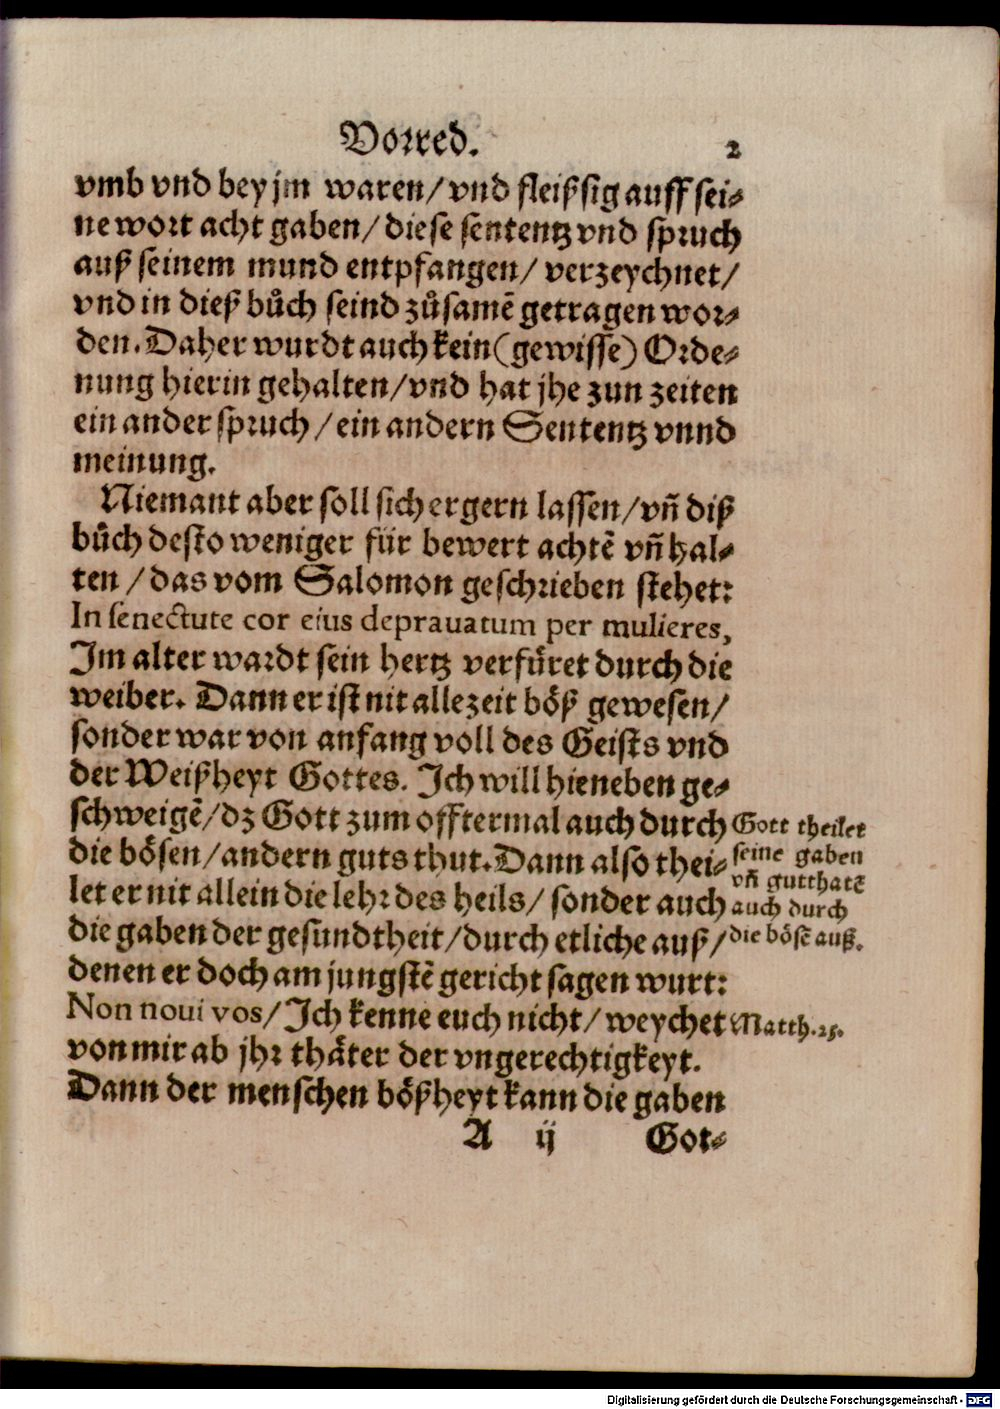 Vorred. 2
vmb vnd bey jm waren/ vnd fleißsig auff sei-
ne wort acht gaben/ diese sententz vnd spruch
auß seinem mund entpfangen/ verzeychnet/
vnd in dieß bůch seind zůsamē getragen wor-
den. Daher wurdt auch kein (gewisse) Orde-
nung hierin gehalten/ vnd hat jhe zun zeiten
ein ander spruch/ ein andern Sententz vnnd
meinung.
Niemant aber soll sich ergern lassen/ vñ diß
bůch desto weniger für bewert achtē vñ hal-
ten/ das vom Salomon geschrieben stehet:
In senectute cor eius deprauatum per mulieres,
Im alter wardt sein hertz verfüret durch die
weiber. Dann er ist nit allezeit böß gewesen/
sonder war von anfang voll des Geists vnd
der Weißheyt Gottes. Ich will hieneben ge-
schweigē/ dz Gott zum offtermal auch durch
die bösen/ andern guts thut. Dann also thei-
let er nit allein die lehr des heils/ sonder auch
die gaben der gesundtheit/ durch etliche auß/
denen er doch am jungstē gericht sagen wurt:
Non noui vos/ Ich kenne euch nicht/ weychet
von mir ab jhr thäter der vngerechtigkeyt.
Dann der menschen bößheyt kann die gaben
A ij Got-
Gott theilet
seine gaben
vñ gutthatē
auch durch
die bösē auß.
Matth. 25.
Digitalisierung gefördert durch die Deutsche Forschungsgemeinschaft - DFG